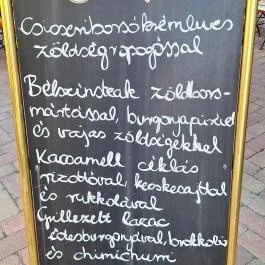 Csicseriborsókrémleves
zöldségropogóssal
Bélszínsteak zöldbors-
mártással, burgonyapürével
és vajas zöldségekkel
Kacsamell céklás
rizottóval, kecskesajttal
és rukkolával
Grillezett lazac
édesburgonyával, brokkolis
és chimichurri